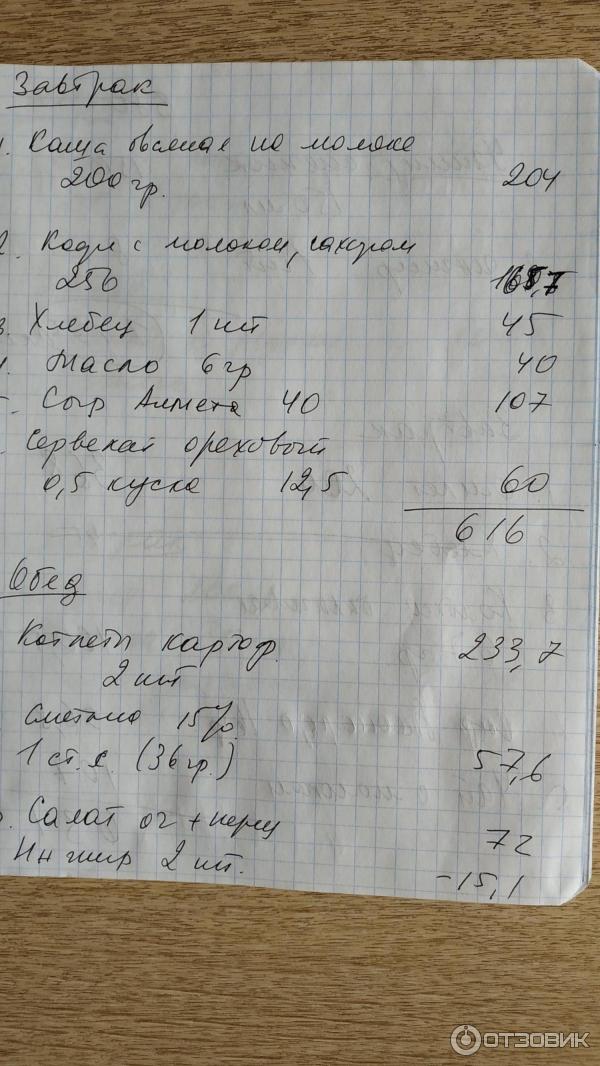 Завтрак
1. Каша овсяная на молоке
200 гр. 204
2. Кофе с молоком, сахаром
250
3. Хлебец 1 шт 45
Масло 6 гр 40
Сыр Алмета 40 107
Сервелат ореховый
0,5 куска 12,5 60
616
Обед
Котлеты картоф.
2 шт 233,7
Сметана 15%
1 ст.л. (36 гр.) 57,6
Салат ог + перец 72
Инжир 2 шт. -15,1
ОТЗОВИК